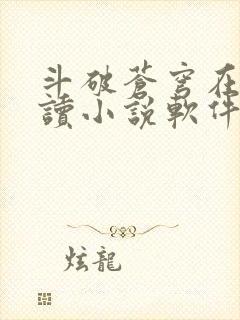 斗破蒼穹在
讀小説軟件
炫龍